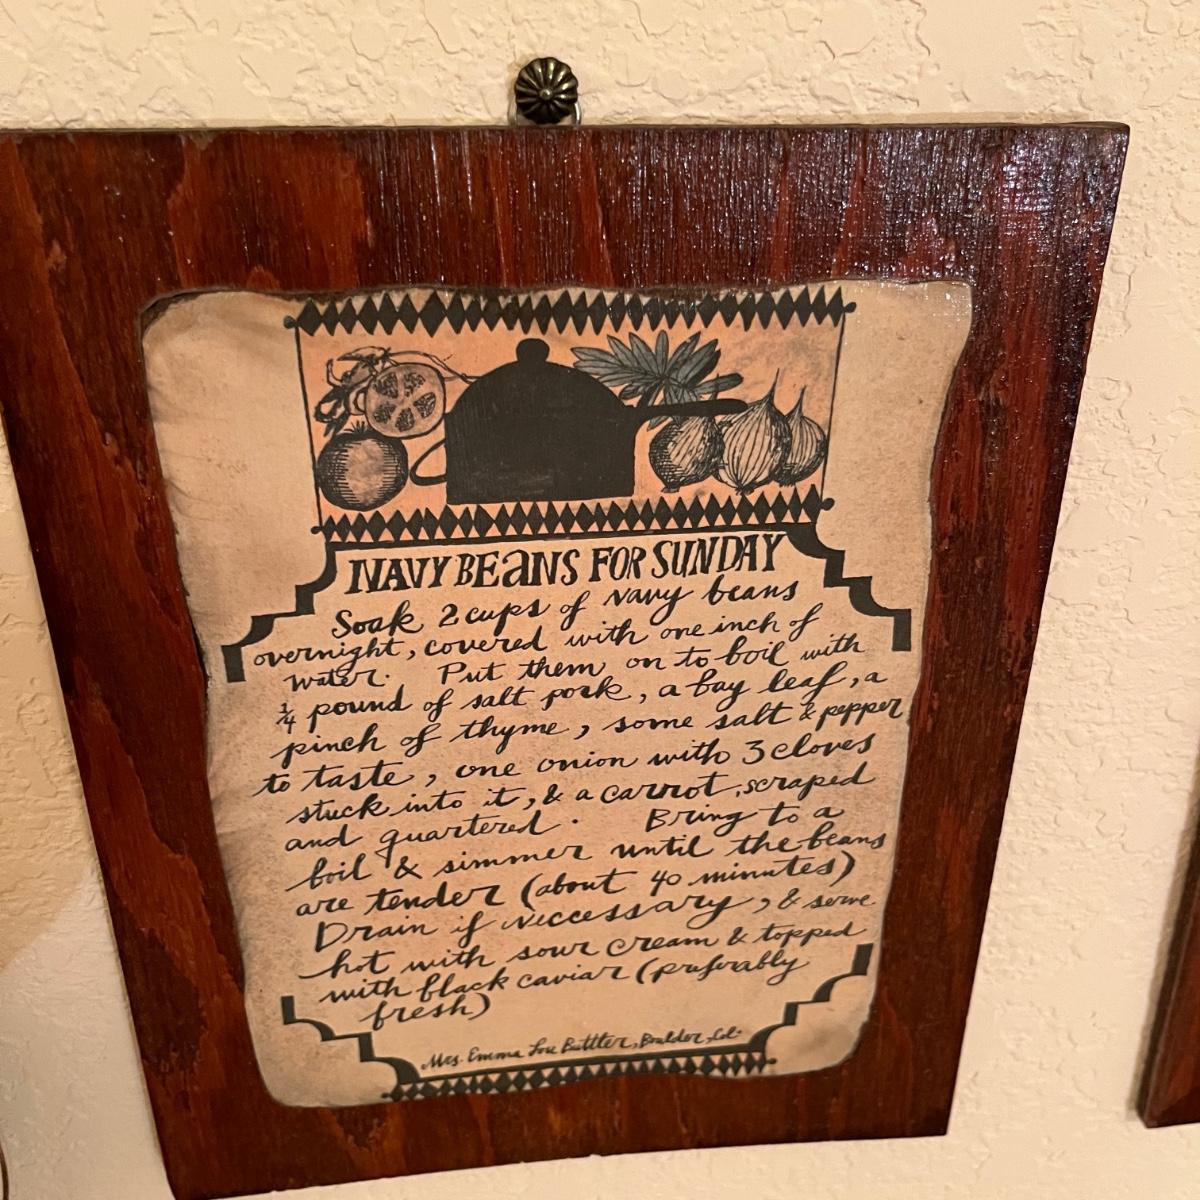 NAVY BEANS FOR SUNDAY
Soak 2 cups of navy beans
overnight, covered with one inch of
water. Put them on to boil with
¼ pound of salt pork, a bay leaf, a
pinch of thyme, some salt & pepper
to taste, one onion with 3 cloves
stuck into it, & a carrot, scraped
and quartered. Bring to a
boil & simmer until the beans
are tender (about 40 minutes)
Drain if neccessary, & serve
hot with sour cream & topped
with black caviar (preferably
fresh)
Mrs. Emma Lou Buttler, Boulder, Col.